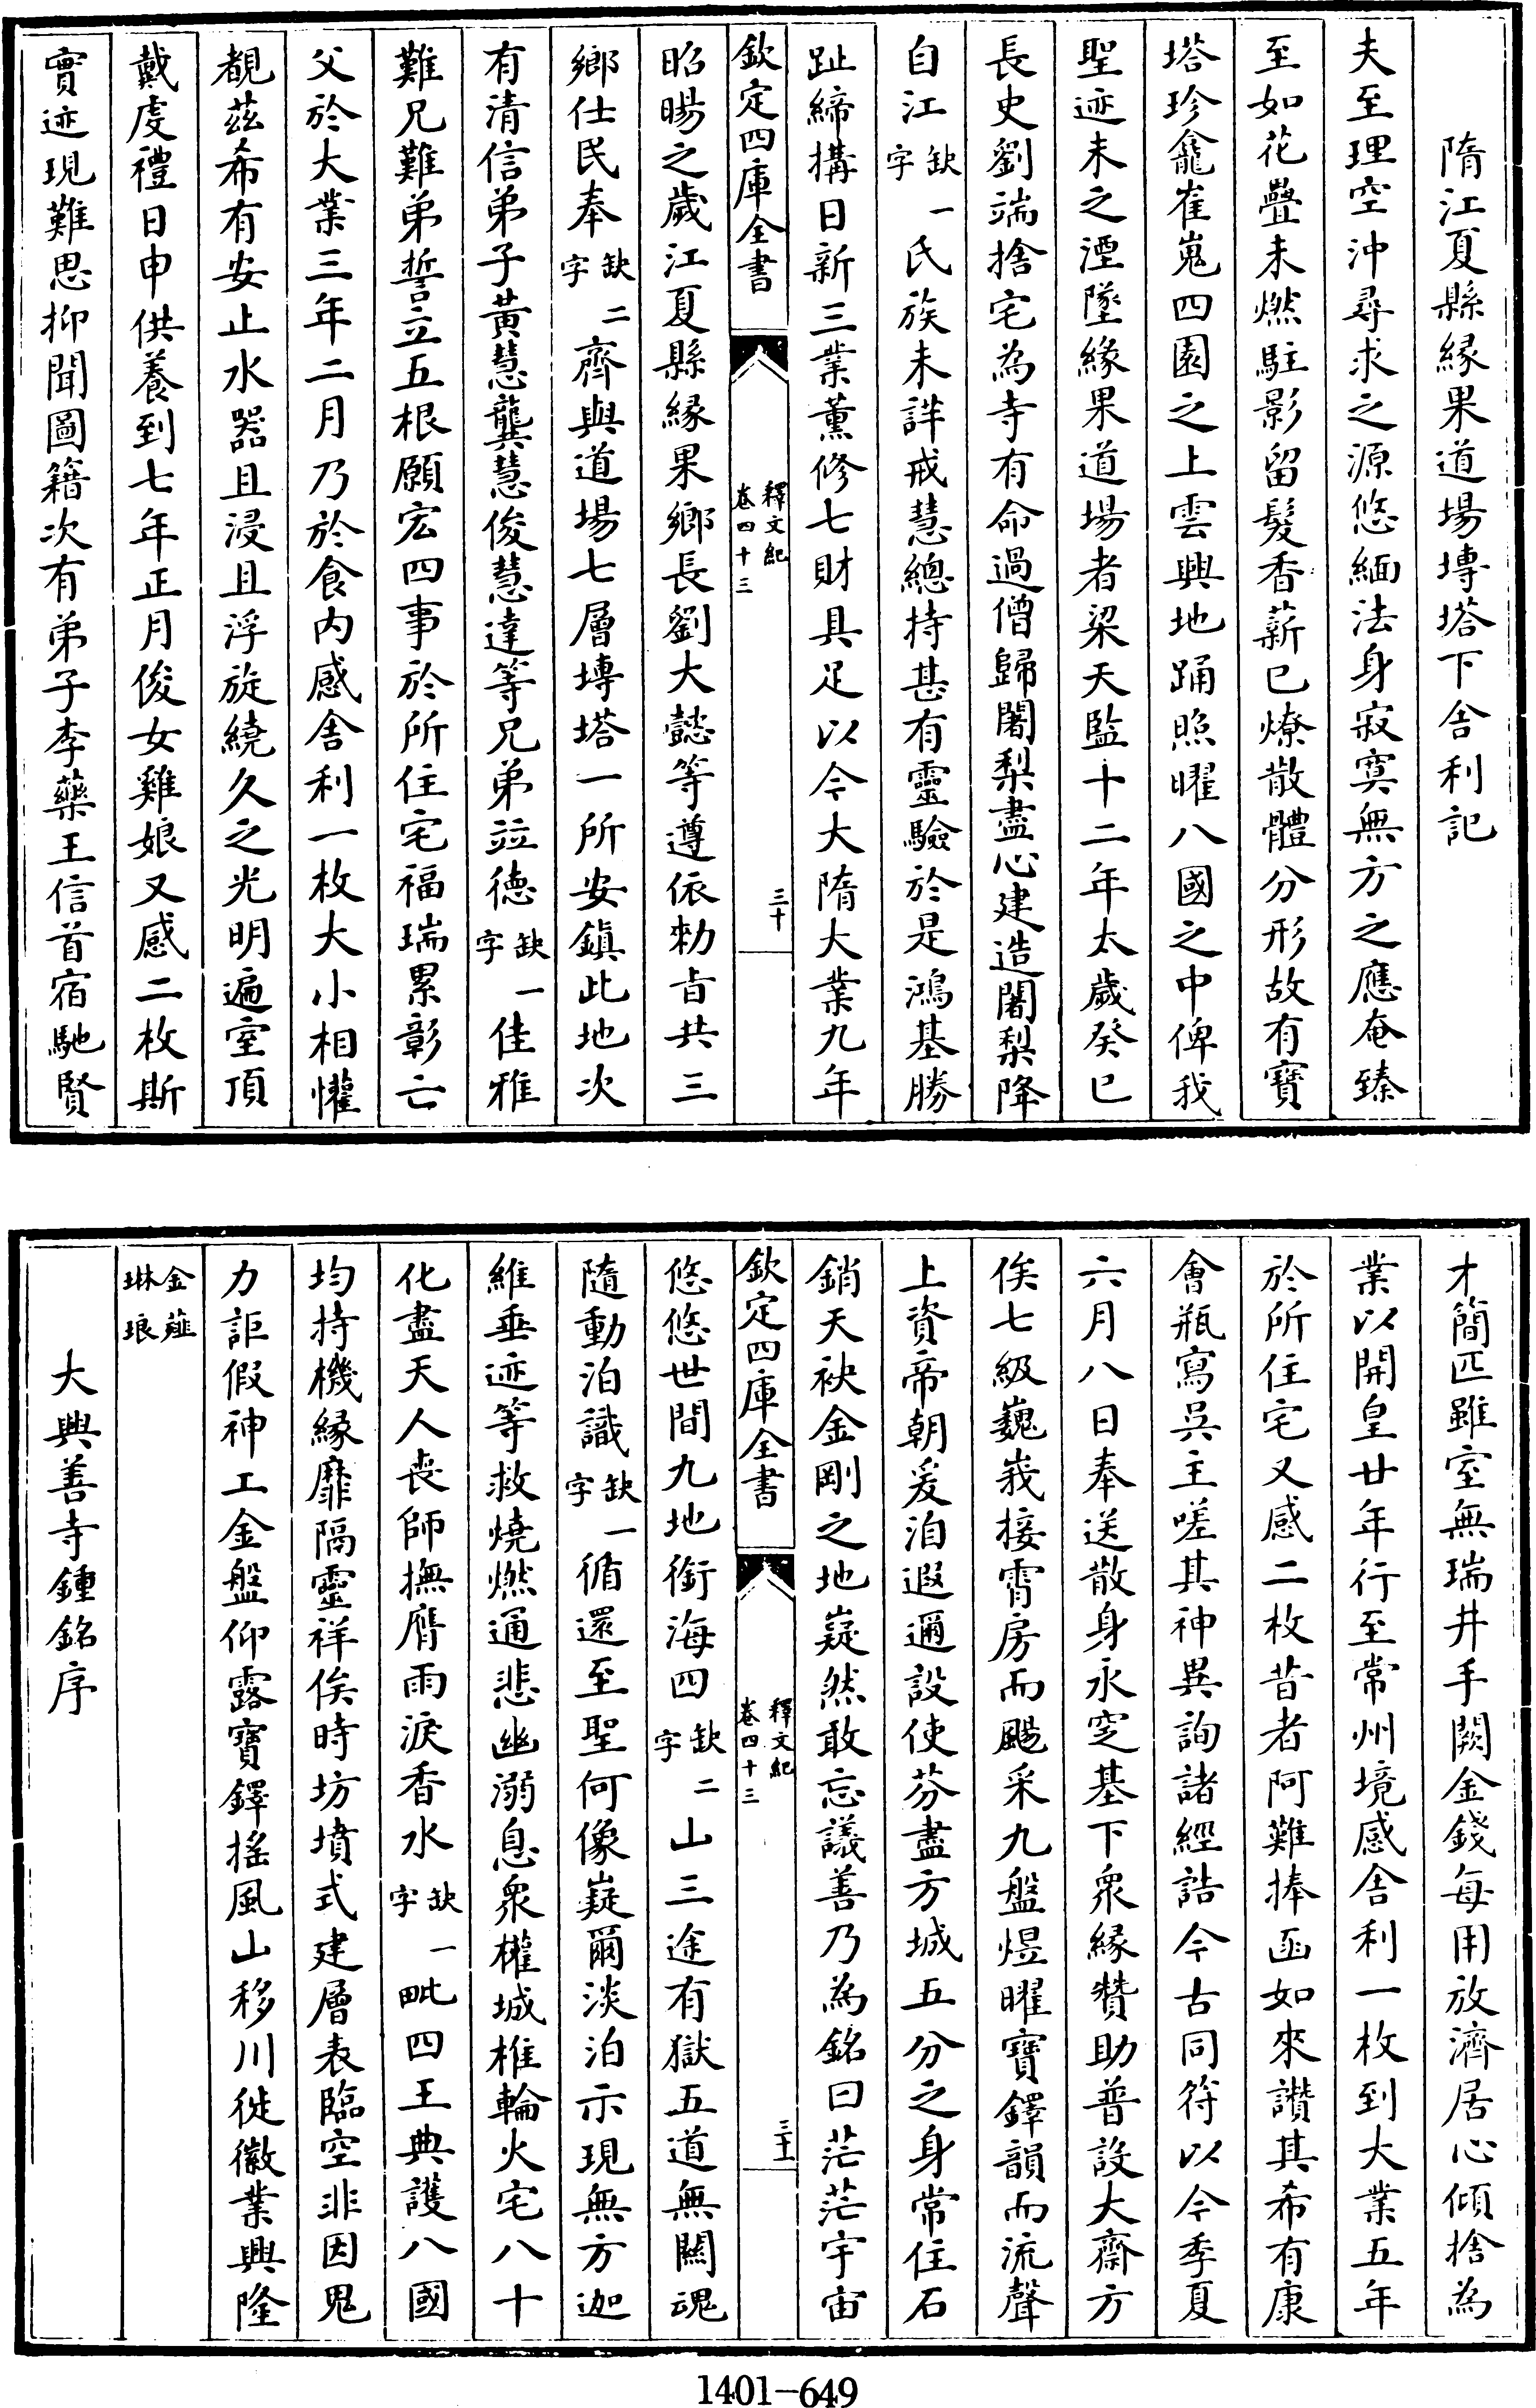 隋江夏縣緣果道場塼塔下舍利記
夫至理空沖尋求之源悠緬法身寂寞無方之應奄臻
至如花疊未燃駐影留髮香薪已燎散體分形故有寶
塔珍龕崔嵬四園之上雲興地踊照曜八國之中俾我
聖迹未之湮墜緣果道場者梁天監十二年太歲癸巳
長史劉端捨宅為寺有命過僧歸闍梨盡心建造闍梨降
自江缺一字氏族未詳戒慧總持甚有靈驗於是鴻基勝
趾締構日新三業薰修七財具足以今大隋大業九年
欽定四庫全書
釋文紀
卷四十三
三十
昭暘之歲江夏縣緣果鄉長劉大懿等遵依勅旨共三
鄉仕民奉缺二字齊與道場七層塼塔一所安鎮此地次
有清信弟子黃慧龔慧俊慧達等兄弟竝德缺一字佳雅
難兄難弟誓立五根願宏四事於所住宅福瑞累彰亡
父於大業三年二月乃於食內感舍利一枚大小相懽
覩茲希有安止水器且浸且浮旋繞久之光明遍室頂
戴虔禮日申供養到七年正月俊女雞娘又感二枚斯
實迹現難思抑聞圖籍次有弟子李藥王信首宿馳賢
才簡匹雖室無瑞井手闕金錢每用放濟居心傾捨為
業以開皇廿年行至常州境感舍利一枚到大業五年
於所住宅又感二枚昔者阿難捧函如來讚其希有康
會瓶寫吳主嗟其神異詢諸經誥今古同符以今季夏
六月八日奉送散身永窆基下眾緣贊助普設大齋方
俟七級巍峩接霄房而颺采九盤煜曜寶鐸韻而流聲
上資帝朝爰洎遐邇設使芬盡方城五分之身常住石
銷天袂金剛之地嶷然敢忘議善乃為銘曰茫茫宇宙
欽定四庫全書
釋文紀
卷四十三
三十一
悠悠世間九地銜海四缺二字山三途有獄五道無關魂
隨動泊識缺一字循還至聖何像嶷爾淡泊示現無方迦
維垂迹等救燒燃通悲幽溺息眾權城椎輪火宅八十
化盡天人喪師撫膺雨淚香水缺一字毗四王典護八國
均持機緣靡隔靈祥俟時坊墳式建層表臨空非因鬼
力詎假神工金盤仰露寶鐸搖風山移川徙徽業興隆
金薤
琳琅
大興善寺鍾銘序
1401-649